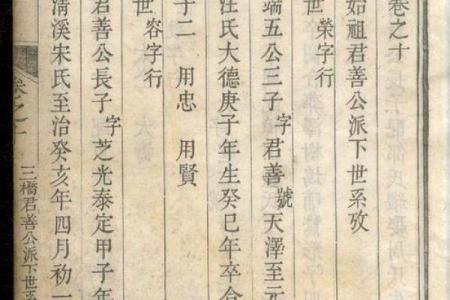 卷之十
始祖君善公派下世系攷
世 榮字行
端五公三子字君善號天澤至元
汪氏大德庚子年生癸巳年卒合
于二 用忠 用賢
世 容字行
君善公長子字芝光泰定甲子年
清溪宋氏至治癸亥年四月初一
卷之十
三橋君善公派下世系